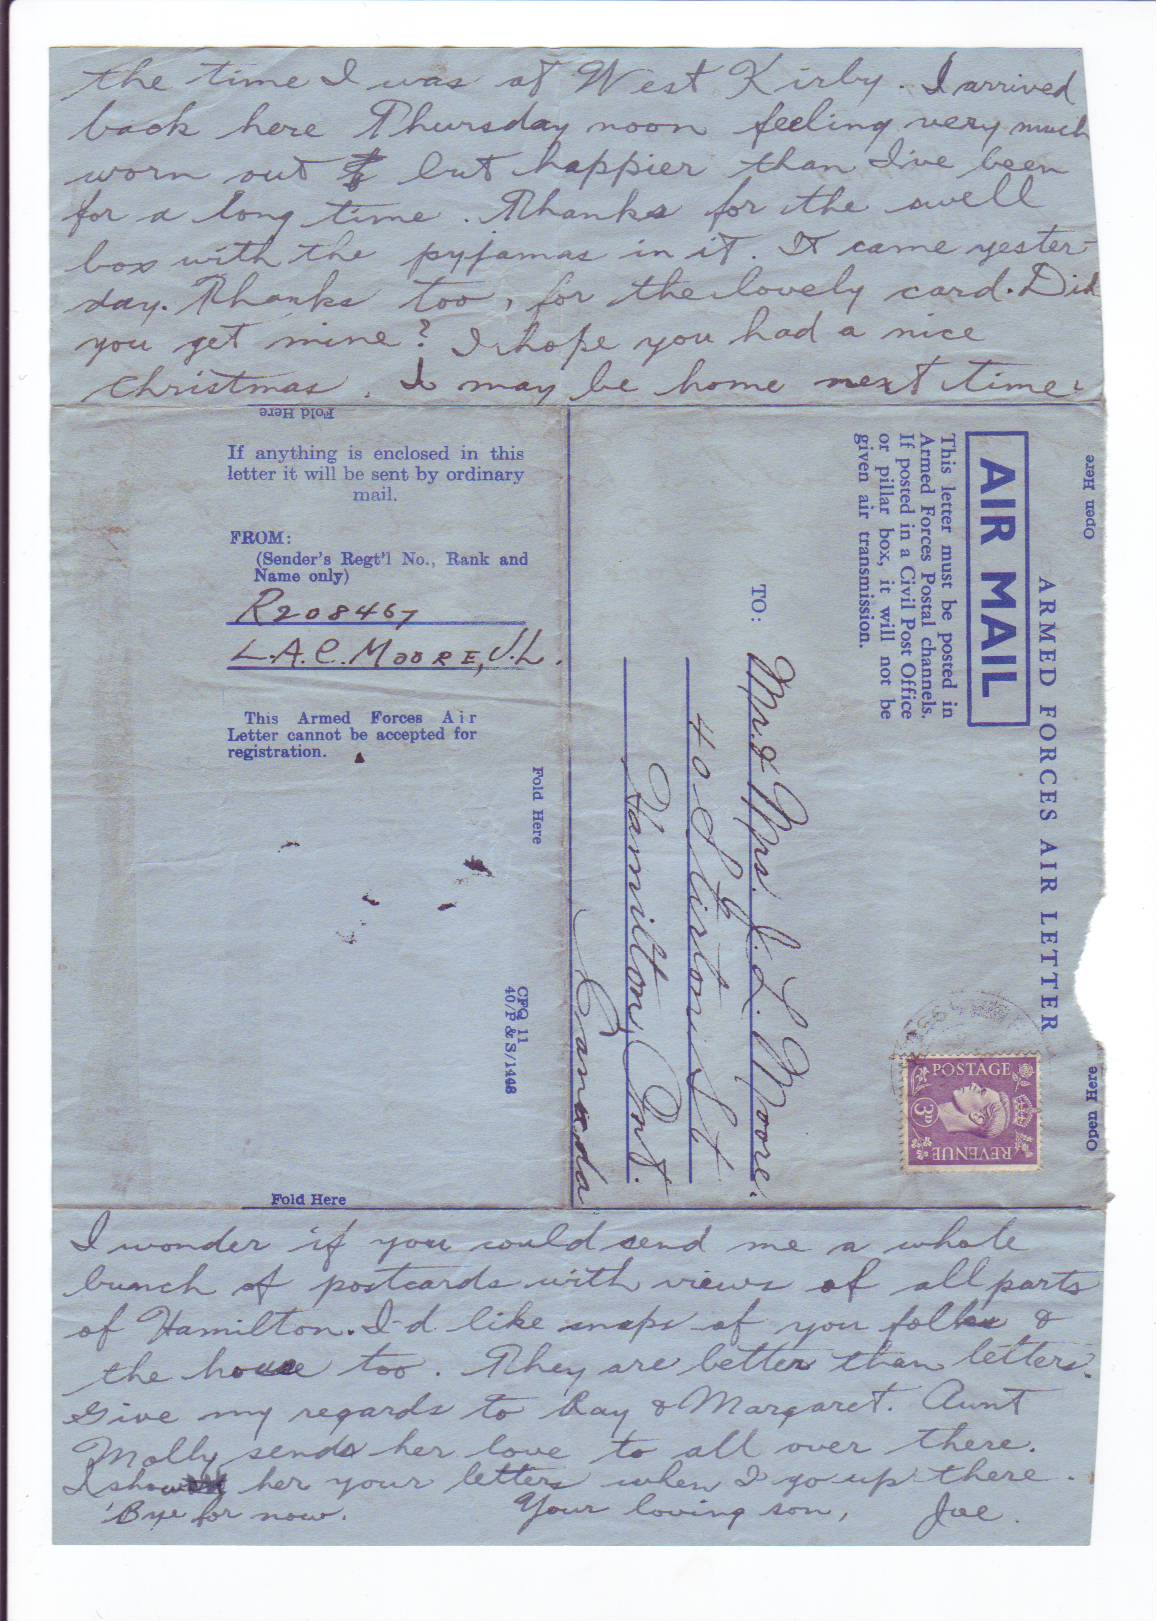 the time I was at West Kirby. I arrived
back here Thursday noon feeling very much
worn out but happier than I've been
for a long time. Thanks for the swell
box with the pyjamas in it. It came yester-
day. Thanks too, for the lovely card. Did
you get mine? I hope you had a nice
Christmas. I may be home next time.
Fold Here
If anything is enclosed in this
letter it will be sent by ordinary
mail.
FROM:
(Sender's Regt'l No., Rank and
Name only)
R208467
L.A.C. MOORE, J.L.
This Armed Forces Air
Letter cannot be accepted for
registration.
Fold Here
CFQ 11
40/P & S/1448
Fold Here
Open Here
ARMED FORCES AIR LETTER
AIR MAIL
This letter must be posted in
Armed Forces Postal channels.
If posted in a Civil Post Office
or pillar box, it will not be
given air transmission.
TO:
Mr. & Mrs. J. L. Moore.
40 Stirton St
Hamilton, Ont.
Canada
POSTAGE
3D
REVENUE
Open Here
I wonder if you could send me a whole
bunch of postcards with views of all parts
of Hamilton. I'd like snaps of you folks &
the house too. They are better than letters.
Give my regards to Ray & Margaret. Aunt
Molly sends her love to all over there.
I show her your letters when I go up there.
'Bye for now. Your loving son, Joe.